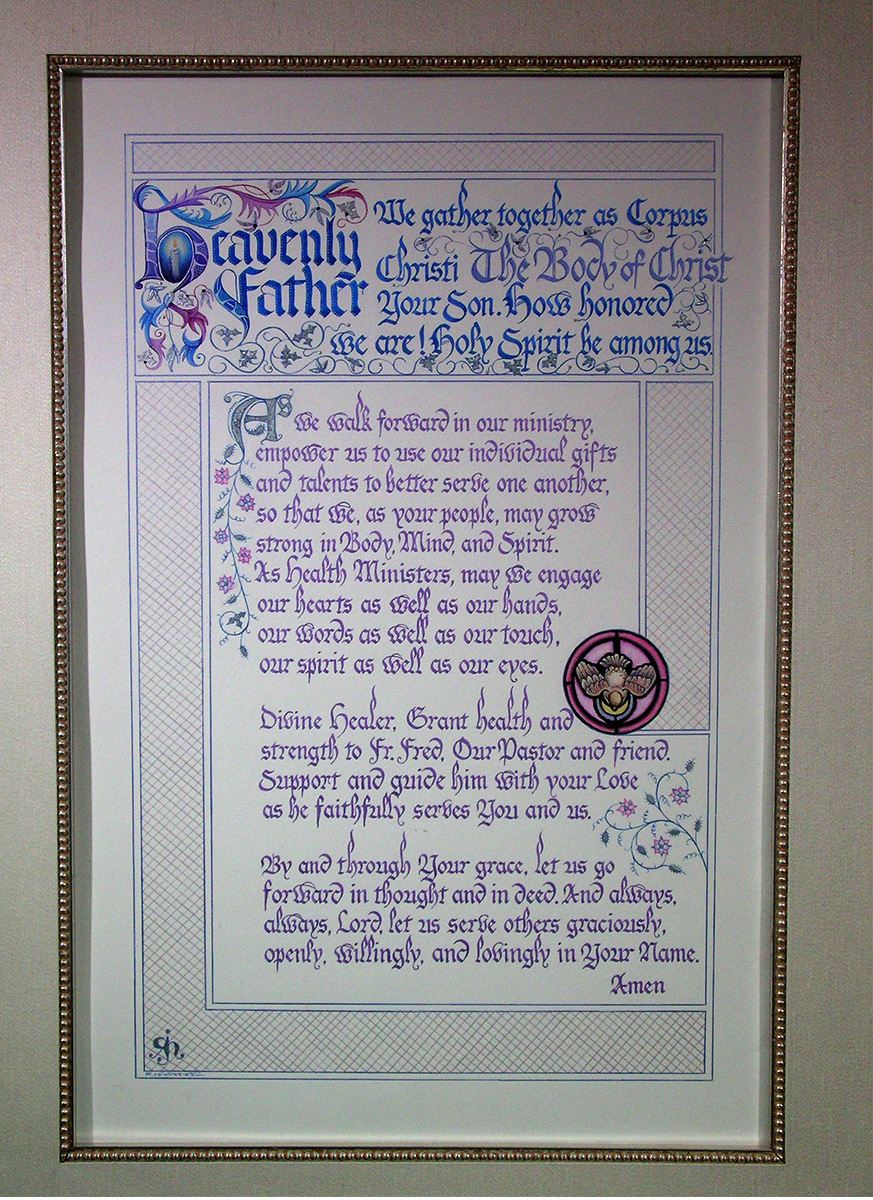 Heavenly
Father
We gather together as Corpus
Christi The Body of Christ
Your Son. How honored
we are! Holy Spirit be among us.
As we walk forward in our ministry,
empower us to use our individual gifts
and talents to better serve one another,
so that we, as your people, may grow
strong in Body, Mind, and Spirit.
As Health Ministers, may we engage
our hearts as well as our hands,
our words as well as our touch,
our spirit as well as our eyes.
Divine Healer, Grant health and
strength to Fr. Fred, Our Pastor and friend.
Support and guide him with your Love
as he faithfully serves You and us.
By and through Your grace, let us go
forward in thought and in deed. And always,
always, Lord, let us serve others graciously,
openly, willingly, and lovingly in Your Name.
Amen